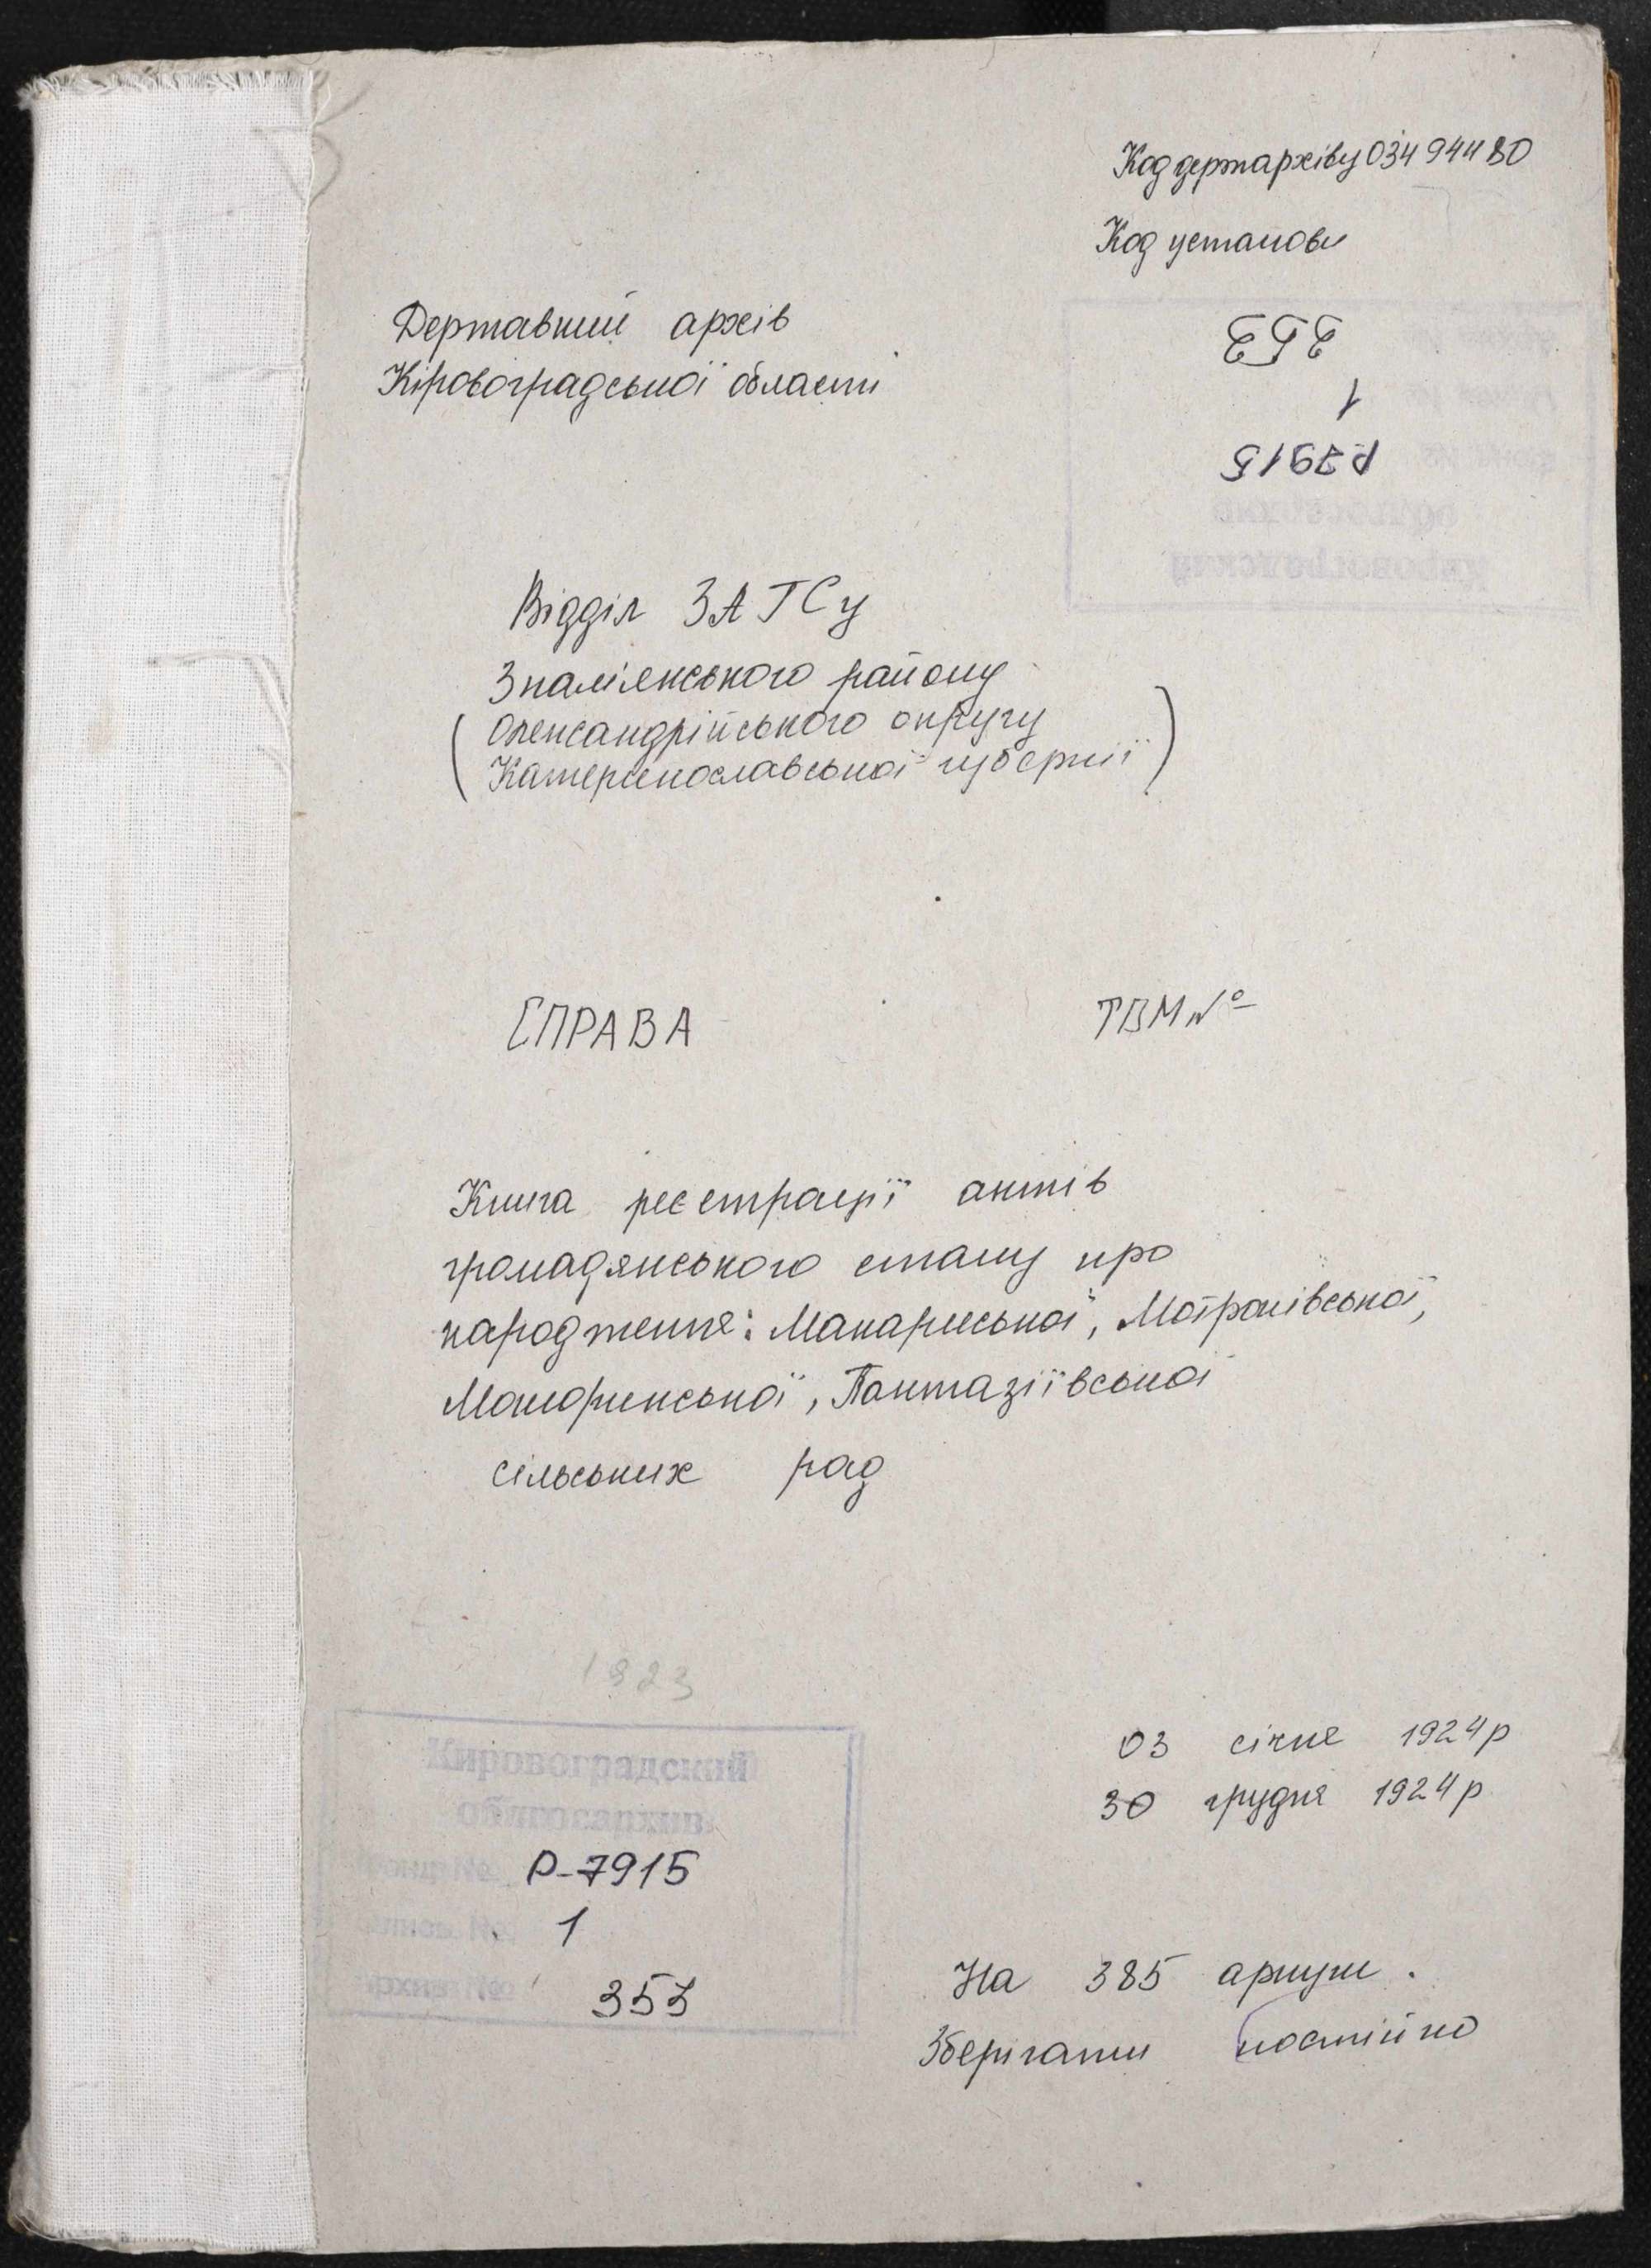 Код держархіву 03494480
Код установи
Державний архів
Кіровоградської області
353
1
Р7915
Відділ ЗАГСу
Знам'янського району
(Олександрійського округу
Катеринославської губернії)
СПРАВА
ТВМ №
Книга реєстрації актів
громадянського стану про
народження: Макариської, Матронівської,
Мошоринської, Пантазіївської
сільських рад
1923
Кировоградский
облгосархив
Фонд № Р-7915
Опись № 1
Архив № 353
03 січня 1924р
30 грудня 1924р
На 385 аркуш.
Зберігати постійно